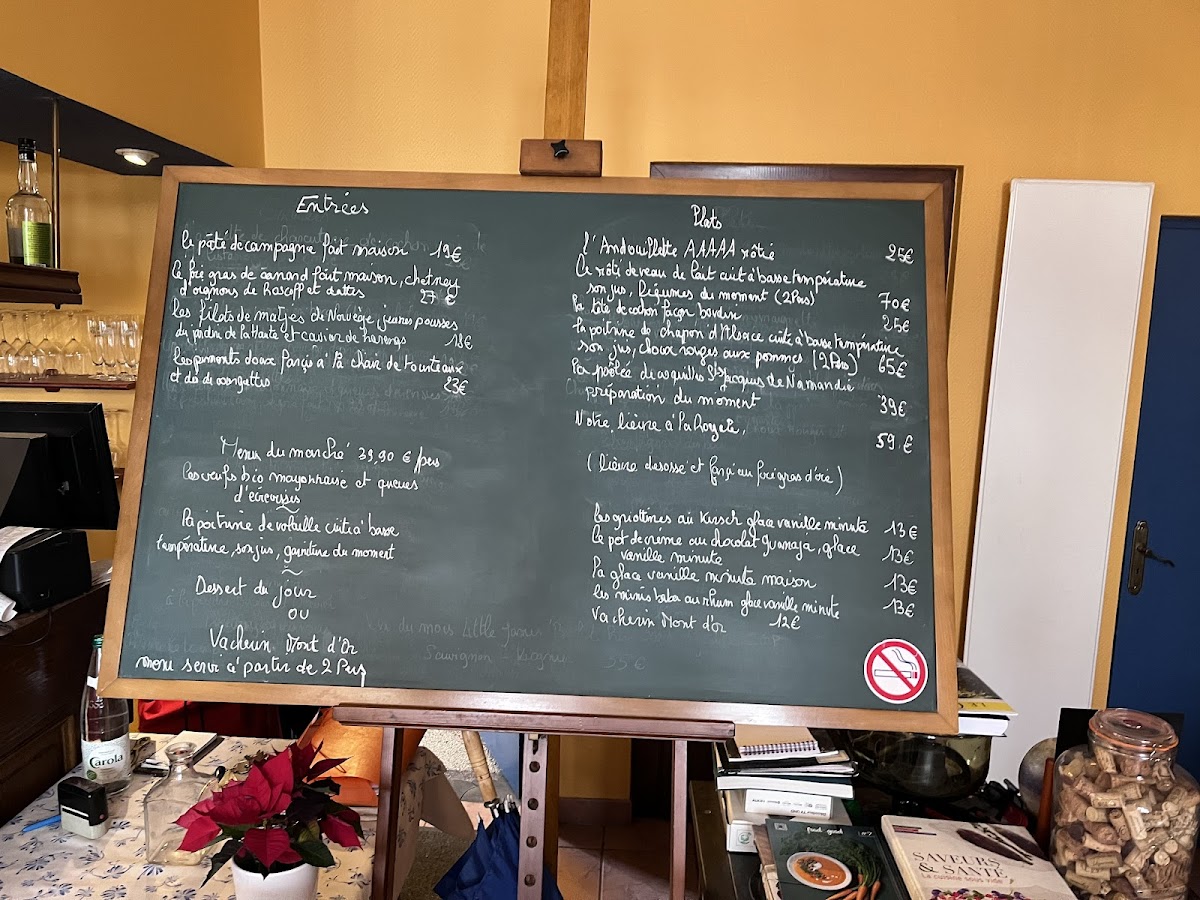 Entrées
le pâté de campagne fait maison 19€
le foie gras de canard fait maison, chutney
d'oignons de Roscoff et dattes 27 €
les filets de matjes de Norvège jeunes pousses
du jardin de la Haute et caviar de harengs 18€
les piments doux farçis à la chair de Tourteaux
et dés de courgettes 23€
Menu du marché 39,90 € /pers
les oeufs bio mayonnaise et queues
d'écrevisses
la poitrine de volaille cuite à basse
température, son jus, garniture du moment
Dessert du jour
ou
Vacherin Mont d'Or
menu servi à partir de 2 Pers
Plats
l'Andouillette AAAAA rôtie 25€
Le rôti de veau de lait cuit à basse température
son jus, légumes du moment (2Pers) 70€
la tête de cochon façon boudin 25€
la poitrine de chapon d'Alsace cuite à basse température
son jus, choux rouges aux pommes (2Pers) 65€
la poêlée de coquilles St Jacques de Normandie
préparation du moment 39€
Notre lièvre à la Royale, 59.€
(lièvre désossé et farçi au foie gras d'oie)
les griottines au Kirsch glace vanille minute 13€
le pot de crème au chocolat Guanaja, glace
vanille minute 13€
la glace vanille minute maison 13€
les minis baba au rhum glace vanille minute 13€
Vacherin Mont d'or 12€
Carola
food
SAVEURS
& SANTÉ
La cuisine sous vide